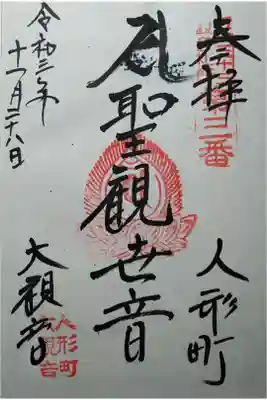 奉拝
第三番
人形町
聖観世音
大観音
人形町
大観音
令和三年
十一月二十八日